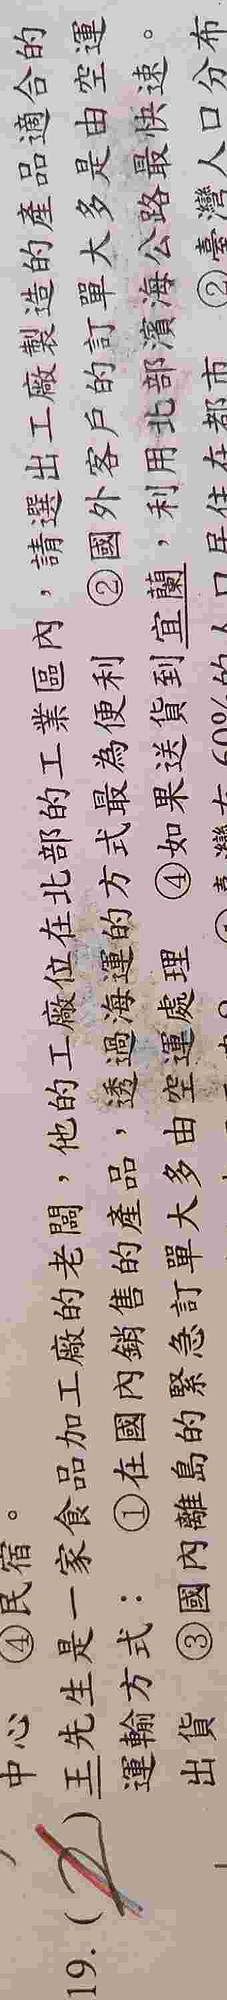 中心　④民宿。
19. ( 2 ) 王先生是一家食品加工廠的老闆，他的工廠位在北部的工業區內，請選出工廠製造的產品適合的
運輸方式：　①在國內銷售的產品，透過海運的方式最為便利　②國外客戶的訂單大多是由空運
出貨　③國內離島的緊急訂單大多由空運處理　④如果送貨到宜蘭，利用北部濱海公路最快速。
60%的人口居住在都市　②臺灣人口分布